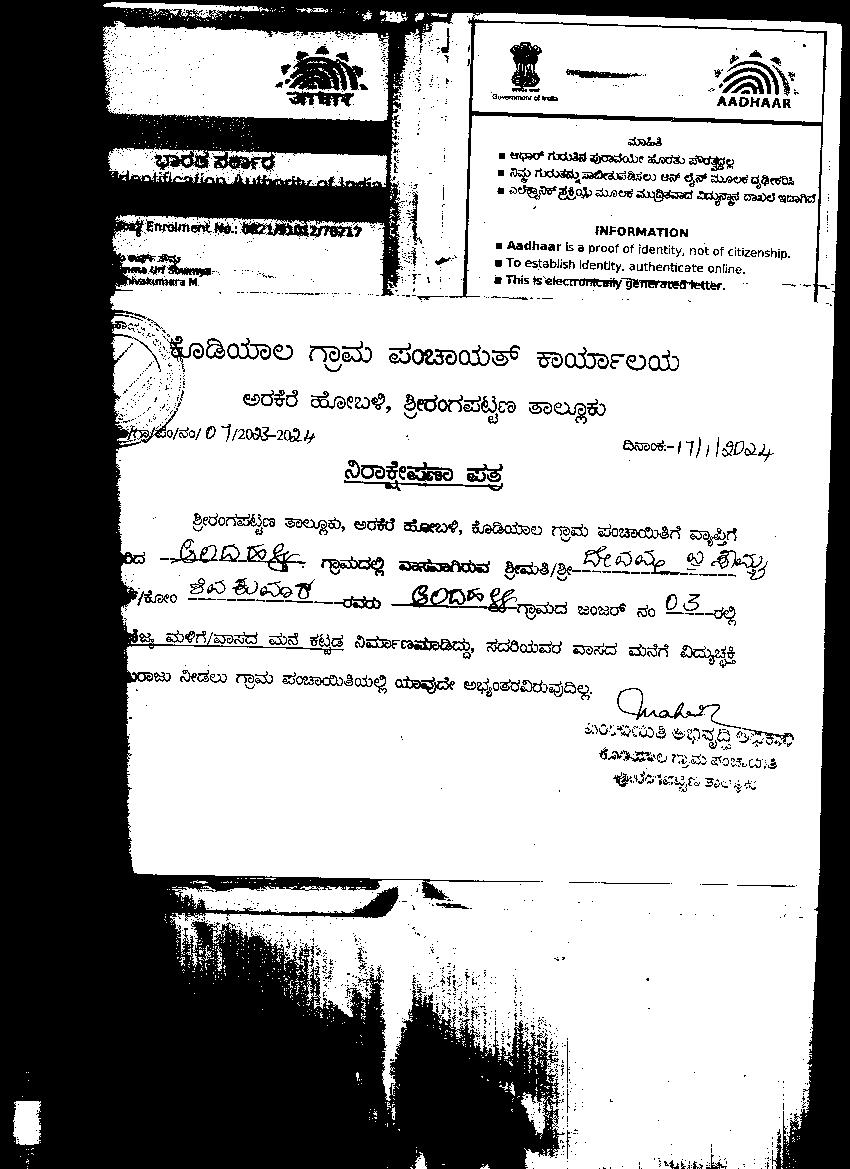 आधार
ಭಾರತ ಸರ್ಕಾರ
Identification Authority of India
Enrolment No.: 0821/81012/78217
Shivakumara M
Government of India
AADHAAR
ಮಾಹಿತಿ
■ ಆಧಾರ್ ಗುರುತಿನ ಪುರಾವೆಯೇ ಹೊರತು ಪೌರತ್ವದ್ದಲ್ಲ
■ ನಿಮ್ಮ ಗುರುತನ್ನು ಸಾಬೀತುಪಡಿಸಲು ಆನ್ ಲೈನ್ ಮೂಲಕ ದೃಢೀಕರಿಸಿ
■ ಎಲೆಕ್ಟ್ರಾನಿಕ್ ಪ್ರಕ್ರಿಯೆ ಮೂಲಕ ಮುದ್ರಿತವಾದ ವಿದ್ಯುನ್ಮಾನ ದಾಖಲೆ ಇದಾಗಿದೆ
INFORMATION
■ Aadhaar is a proof of identity, not of citizenship.
■ To establish identity, authenticate online.
■ This is electronically generated letter.
ಕೊಡಿಯಾಲ ಗ್ರಾಮ ಪಂಚಾಯತ್ ಕಾರ್ಯಾಲಯ
ಅರಕೆರೆ ಹೋಬಳಿ, ಶ್ರೀರಂಗಪಟ್ಟಣ ತಾಲ್ಲೂಕು
/ಗ್ರಾ/ಪಂ/ನಂ/ 07/2023-2024
ದಿನಾಂಕ:-17/1/2024
ನಿರಾಕ್ಷೇಪಣಾ ಪತ್ರ
ಶ್ರೀರಂಗಪಟ್ಟಣ ತಾಲ್ಲೂಕು, ಅರಕೆರೆ ಹೋಬಳಿ, ಕೊಡಿಯಾಲ ಗ್ರಾಮ ಪಂಚಾಯಿತಿಗೆ ವ್ಯಾಪ್ತಿಗೆ
ರಿದ ಗ್ರಾಮದಲ್ಲಿ ವಾಸವಾಗಿರುವ ಶ್ರೀಮತಿ/ಶ್ರೀ
/ಕೋಂ ಶಿವಕುಮಾರ ರವರು ಗ್ರಾಮದ ಜಂಜರ್ ನಂ 03 ರಲ್ಲಿ
ಮಳಿಗೆ/ವಾಸದ ಮನೆ ಕಟ್ಟಡ ನಿರ್ಮಾಣಮಾಡಿದ್ದು, ಸದರಿಯವರ ವಾಸದ ಮನೆಗೆ ವಿದ್ಯುಚ್ಛಕ್ತಿ
ರಾಜು ನೀಡಲು ಗ್ರಾಮ ಪಂಚಾಯಿತಿಯಲ್ಲಿ ಯಾವುದೇ ಅಭ್ಯಂತರವಿರುವುದಿಲ್ಲ.
ಪಂಚಾಯಿತಿ ಅಭಿವೃದ್ಧಿ ಅಧಿಕಾರಿ
ಕೊಡಿಯಾಲ ಗ್ರಾಮ ಪಂಚಾಯಿತಿ
ಶ್ರೀರಂಗಪಟ್ಟಣ ತಾಲ್ಲೂಕು